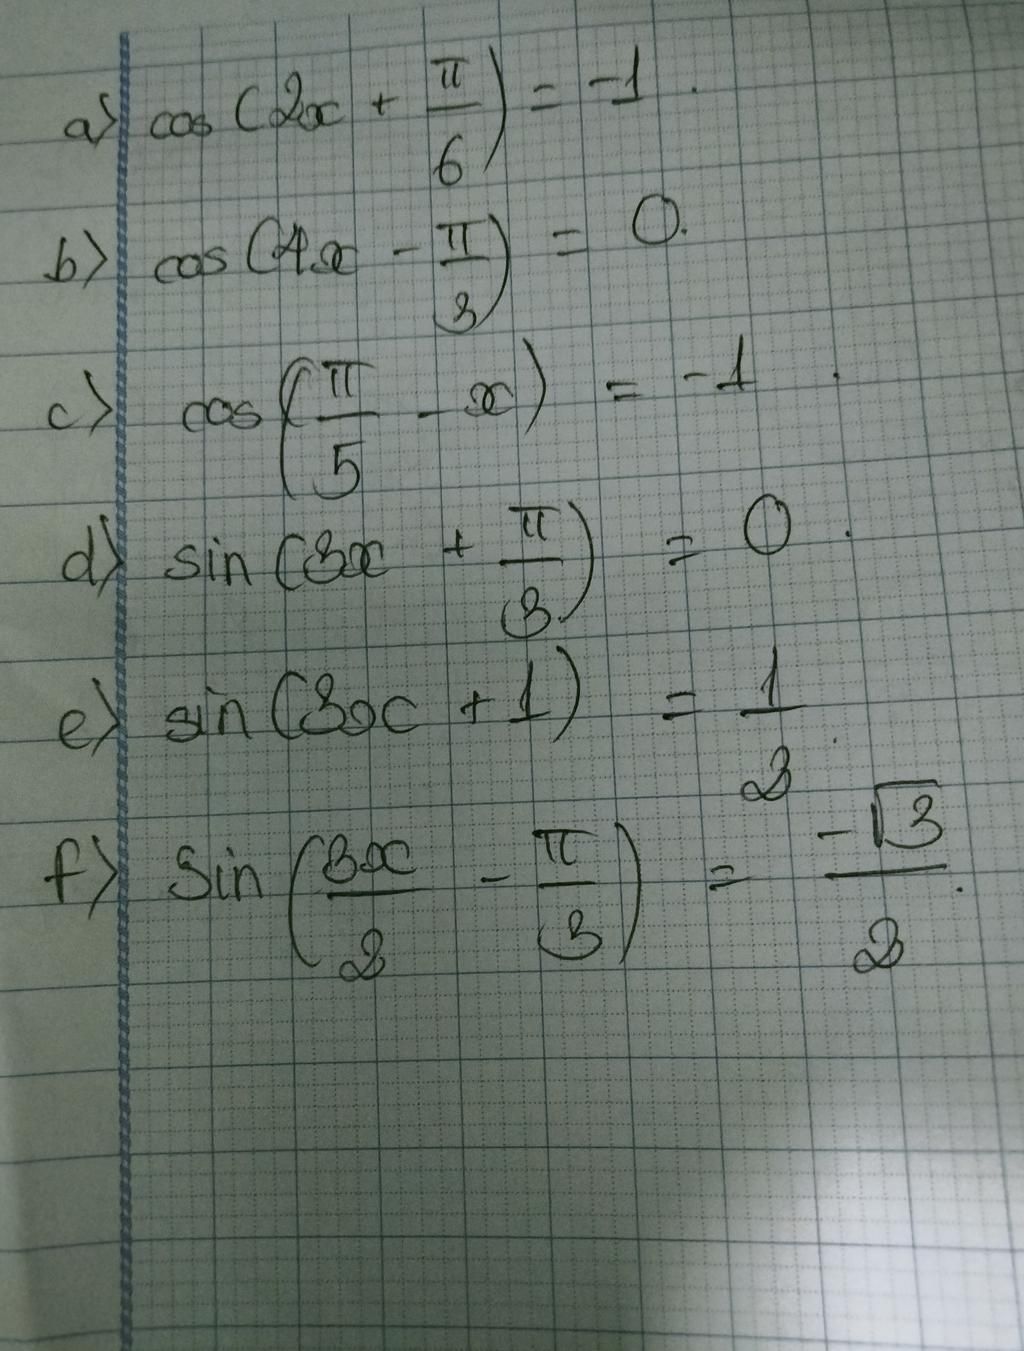 a) cos(2x + π/6) = -1.
b) cos(4x - π/3) = 0.
c) cos(π/5 - x) = -1.
d) sin(3x + π/3) = 0.
e) sin(3x + 1) = 1/2.
f) Sin(3x/2 - π/3) = -√3/2.